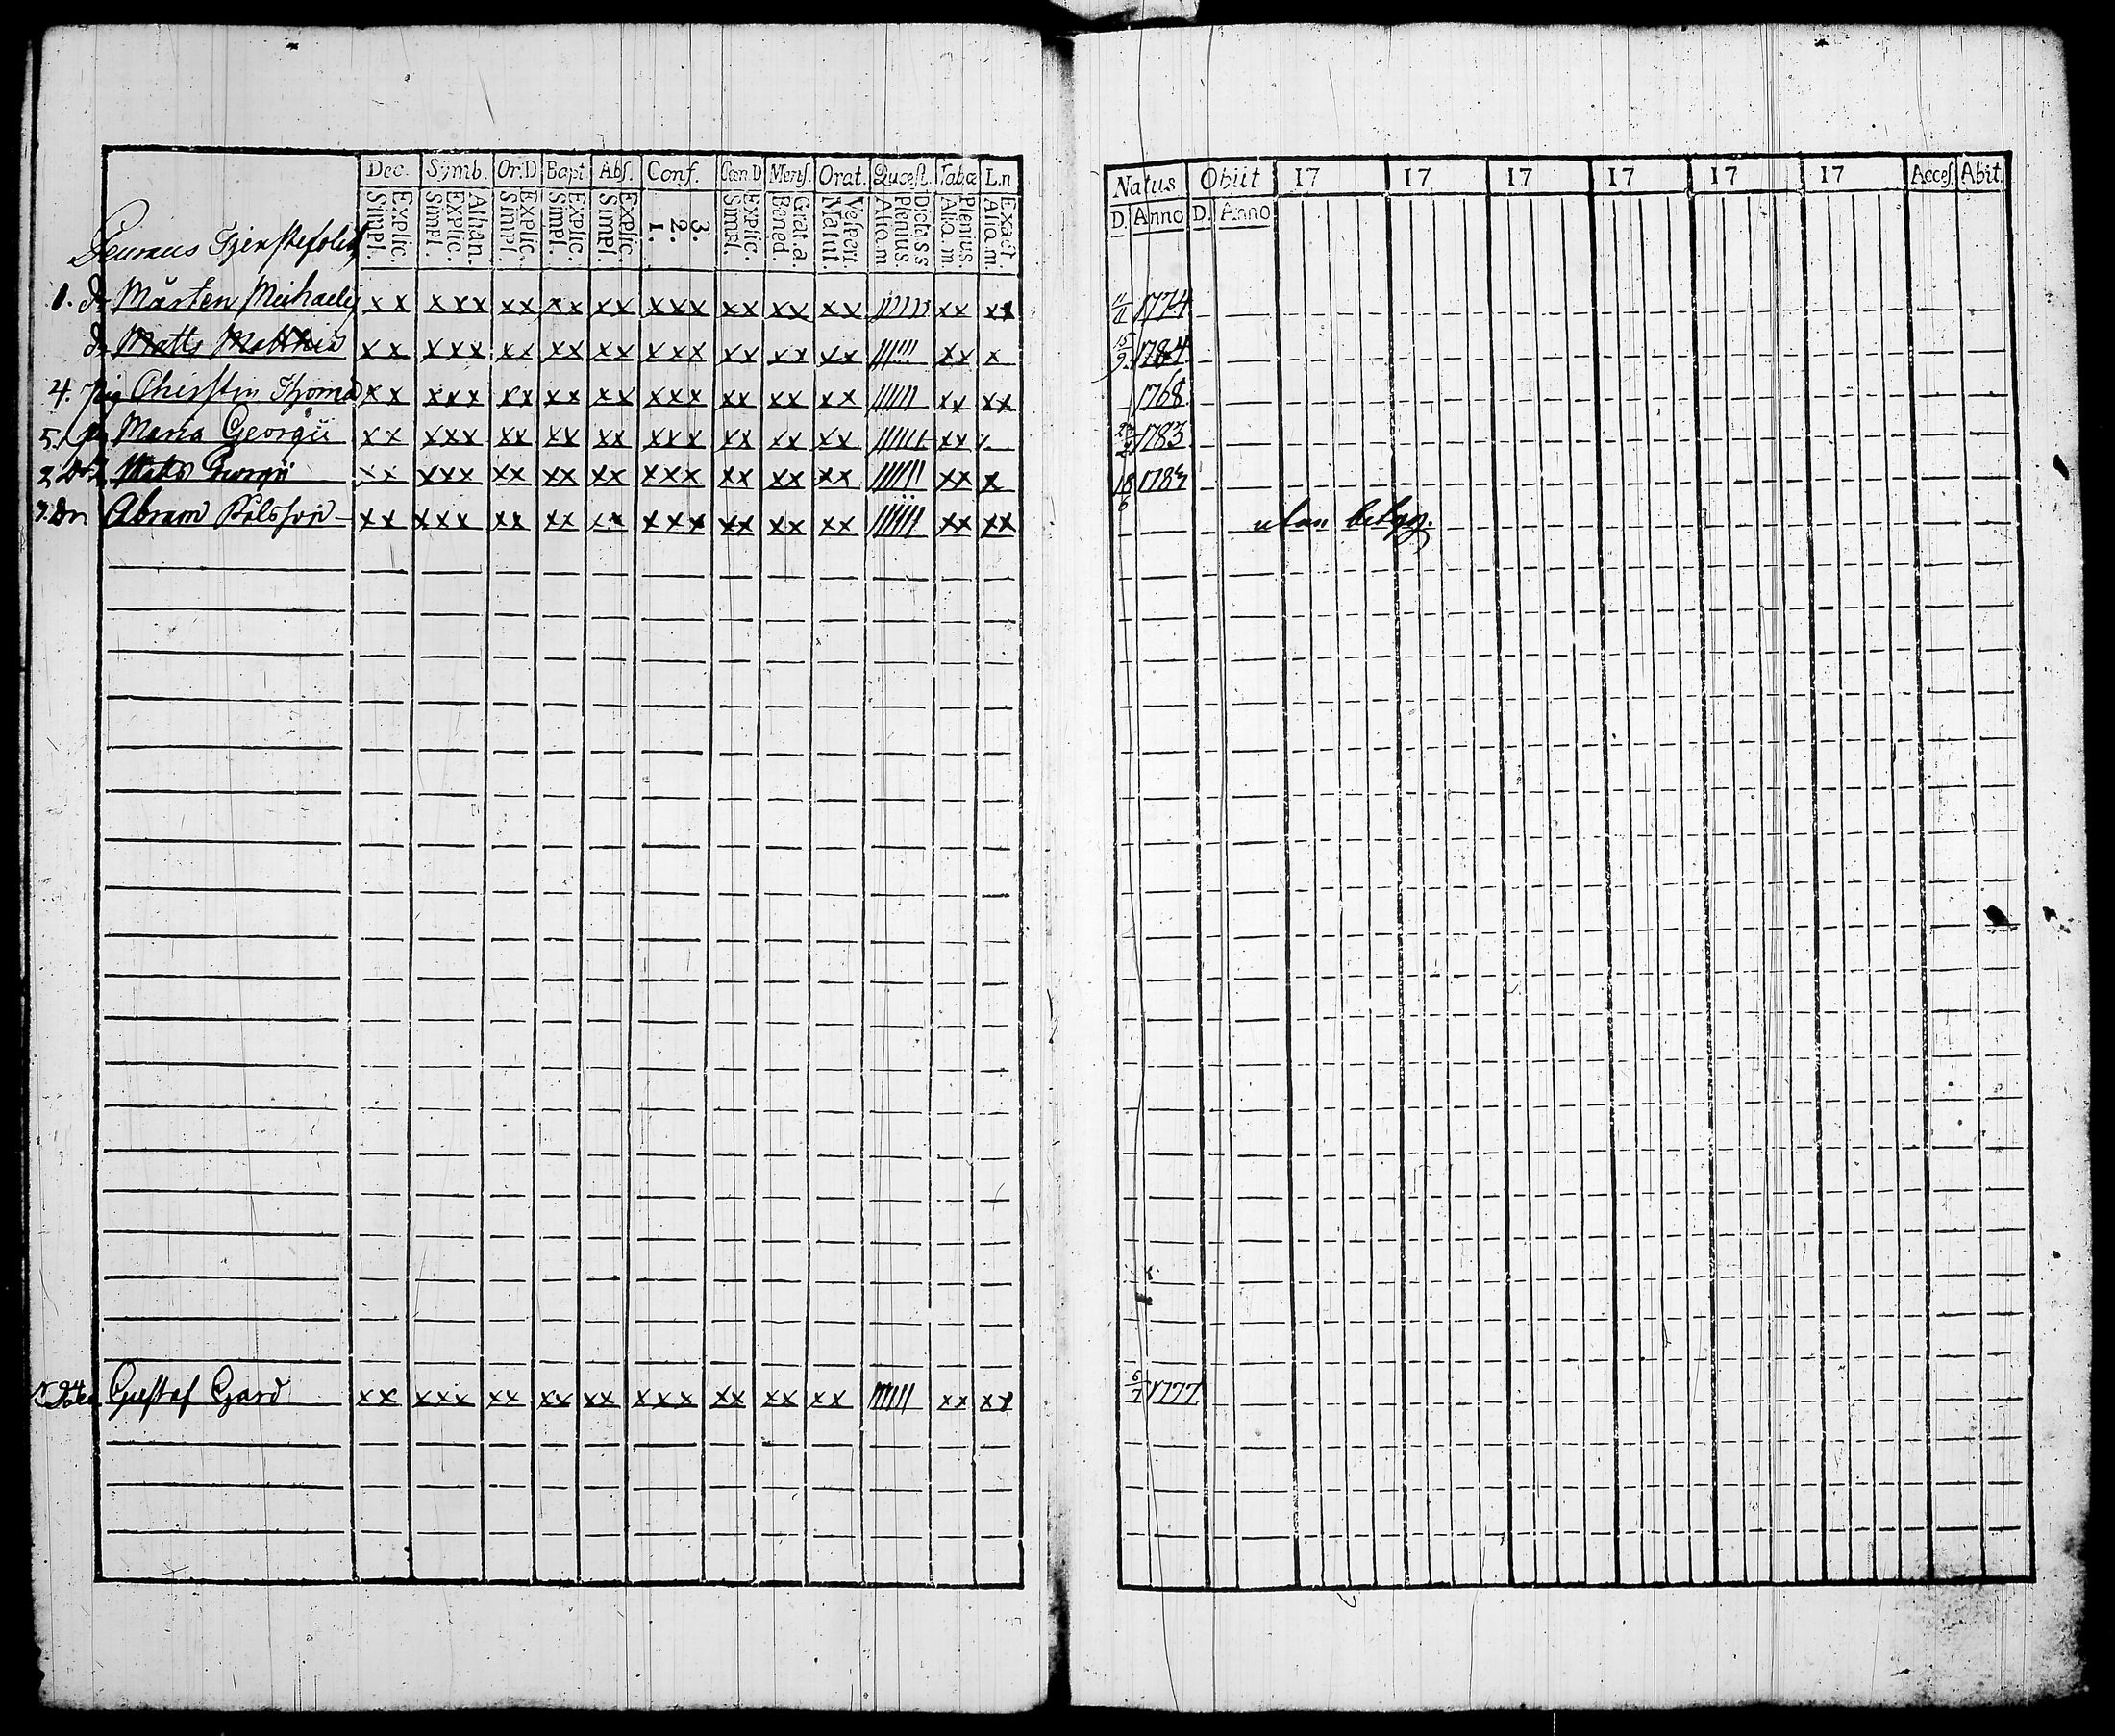 Dec. Symb. Or.D Bapt. Abs. Conf. Cœn.D Mens. Orat. Quœst. Tab.œ L.n
Explic. Simpl. Athan. Explic. Simpl. Explic. Simpl. Explic. Simpl. Explic. Simpl. 3. 2. 1. Explic. Simpl. Grat.a. Bened. Vespert. Matut. Dicta ss Plenius. Aliq.m Plenius. Aliq.m. Exact. Aliq.m.
Tjenstefolck
1. dr Mårten Michaelis xx xxx xx xx xx xxx xx xx xx xx xx
dr Matts Matthiæ xx xxx xx xx xx xxx xx xx xx xx x
4. pig Chirstin Thomæ xx xxx xx xx xx xxx xx xx xx xx xx
5. pig Maria Georgii xx xxx xx xx xx xxx xx xx xx xx
2 Matts Georgii xx xxx xx xx xx xxx xx xx xx xx x
3. Dr. Abram Pålsson xx xxx xx xx xx xxx xx xx xx xx xx
Gustaf Gard xx xxx xx xx xx xxx xx xx xx xx xx
Natus Obiit 17 17 17 17 17 17 Acces. Abit.
D. Anno D. Anno
11/11 1774
15/9 1784
1768
1783
18/6 1783
utan betyg.
6/7 1777